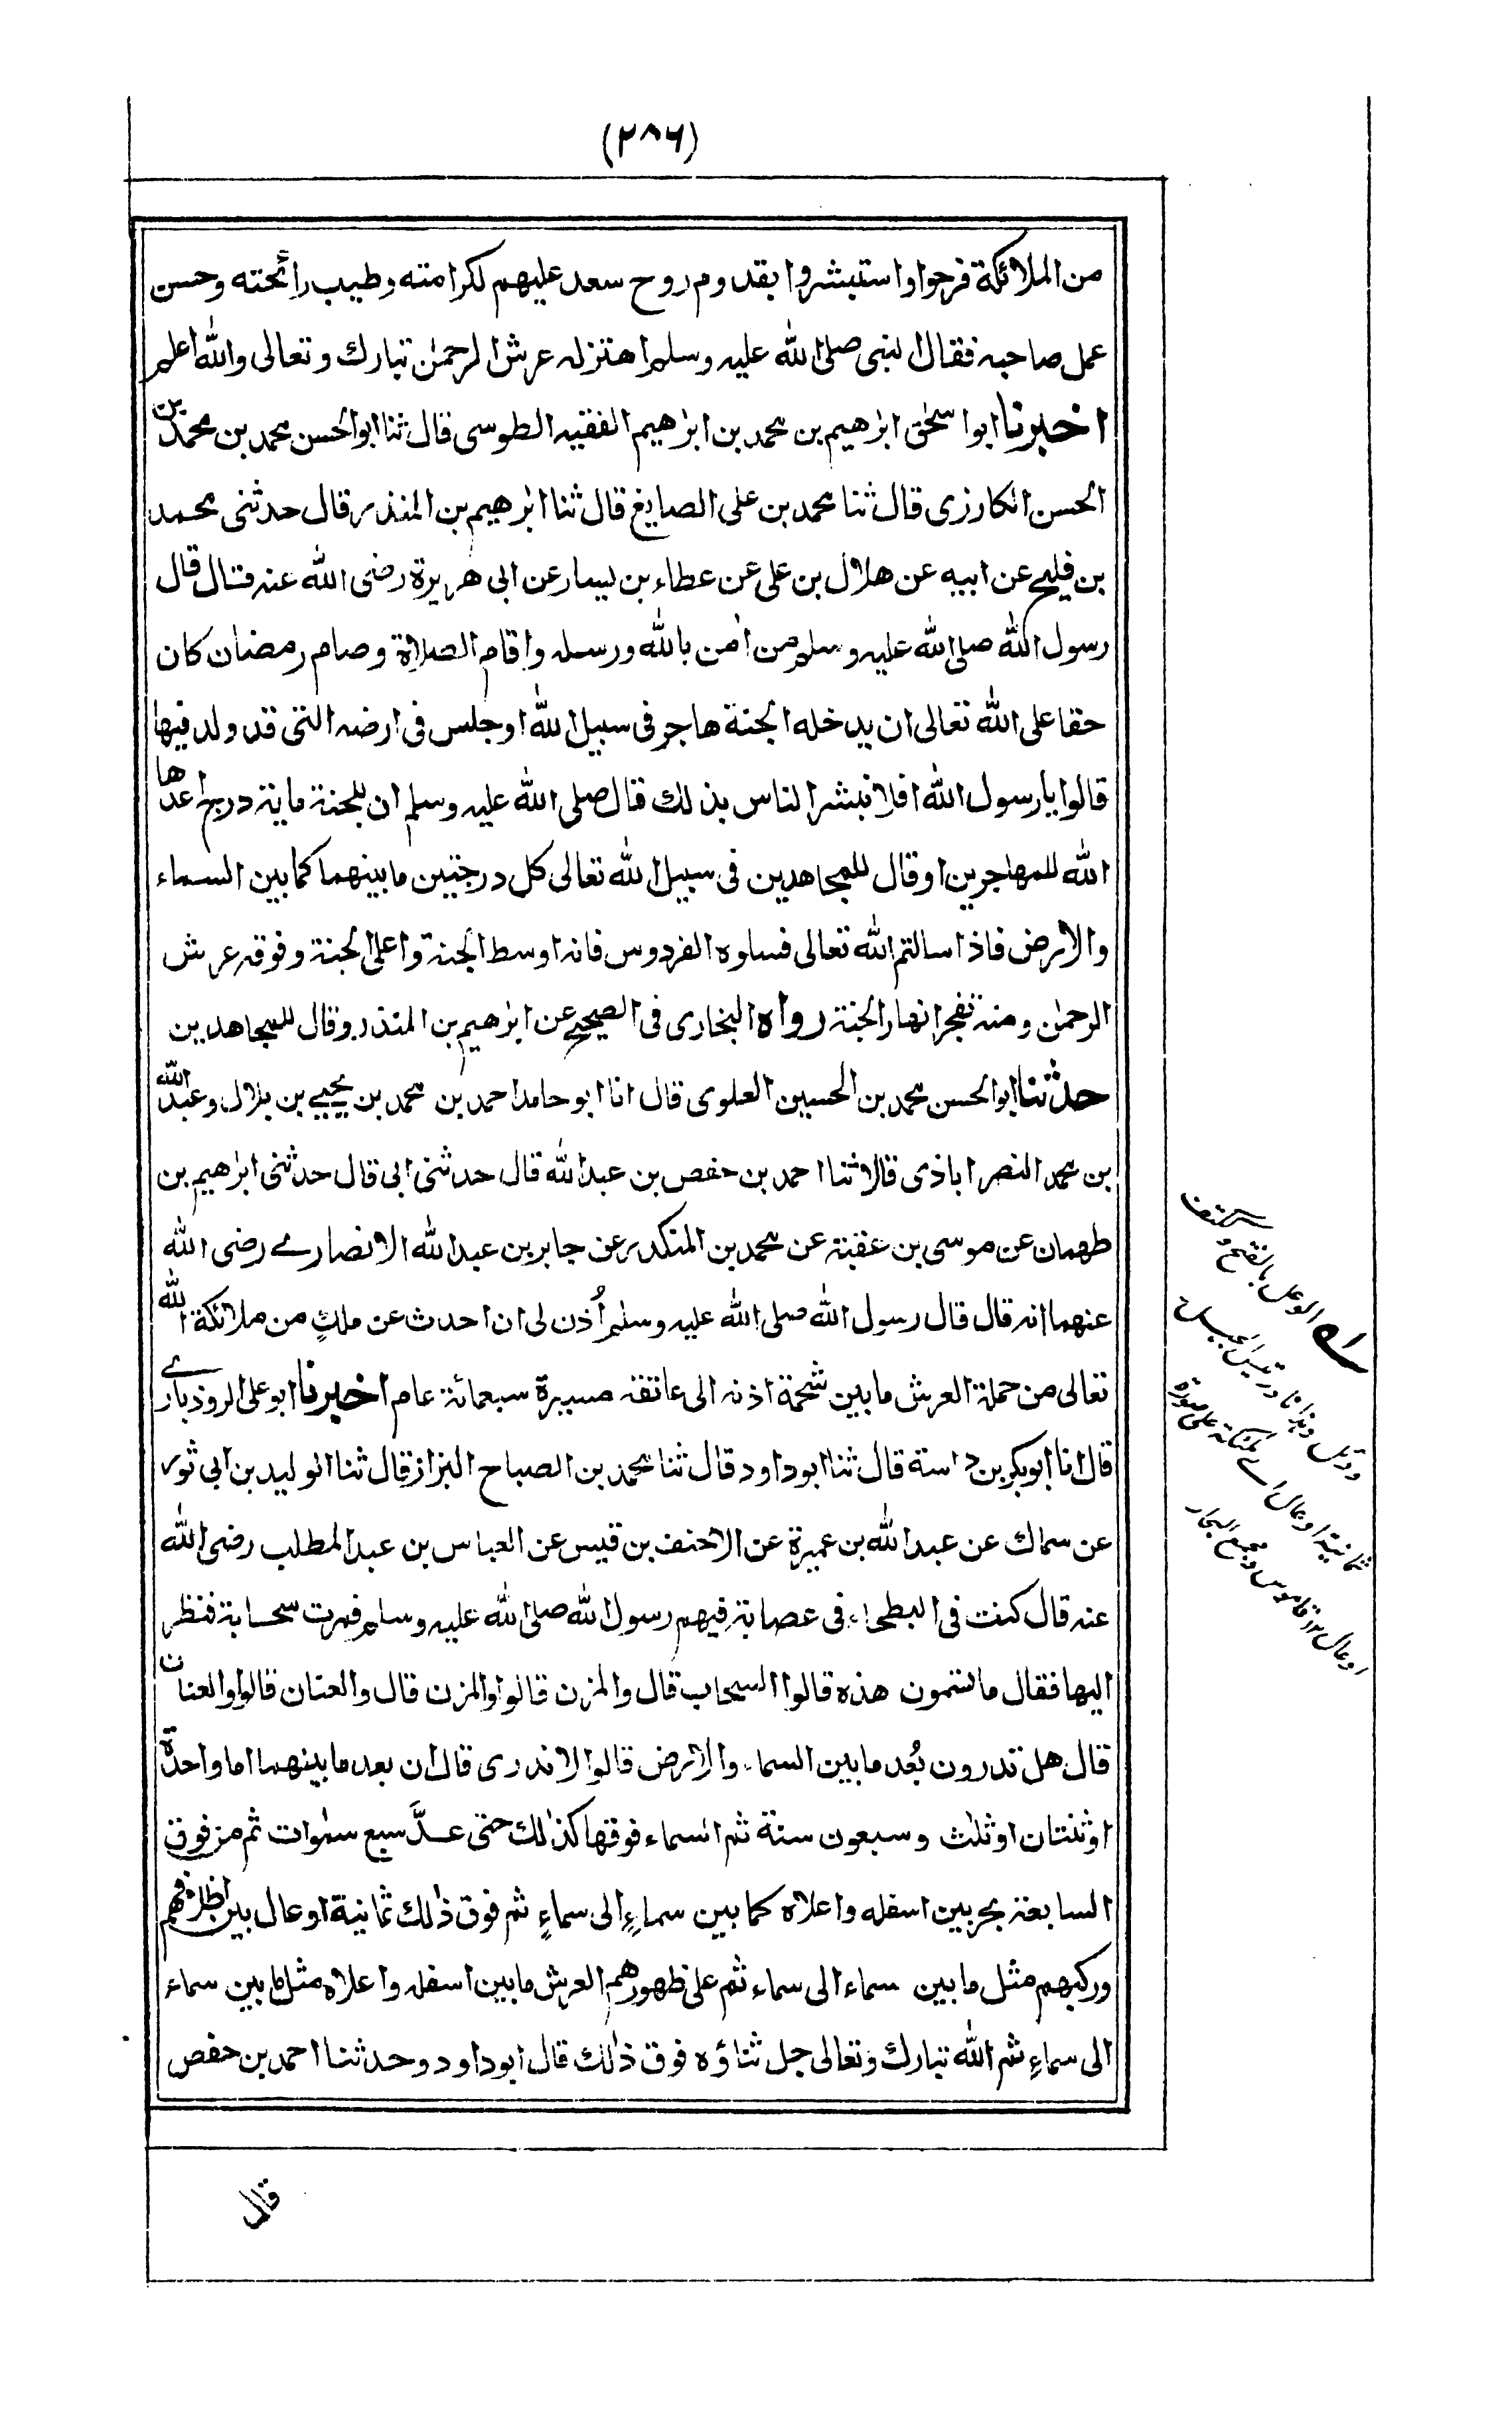 (٢٨٦)
من الملائكة فرحوا واستبشروا بقدوم روح سعد عليهم لكرامته وطيب رائحته وحسن
عمل صاحبه فقال النبى صلى الله عليه وسلم اهتز له عرش الرحمٰن تبارك وتعالى والله اعلم
اخبرنا ابو اسحٰق ابرٰهيم بن محمد بن ابرٰهيم الفقيه الطوسى قال ثنا ابو الحسن محمد بن محمد بن
الحسن الكارزى قال ثنا محمد بن على الصايغ قال ثنا ابرٰهيم بن المنذر قال حدثنى محمد
بن فليح عن ابيه عن هلال بن على عن عطاء بن يسار عن ابى هريرة رضى الله عنه قال قال
رسول الله صلى الله عليه وسلم من اٰمن بالله ورسله واقام الصلاة وصام رمضان كان
حقا على الله تعالى ان يدخله الجنة هاجر فى سبيل الله او جلس فى ارضه التى قد ولد فيها
قالوا يا رسول الله افلا نبشر الناس بذلك قال صلى الله عليه وسلم ان للجنة ماية درجة اعدها
الله للمهاجرين او قال للمجاهدين فى سبيل الله تعالى كل درجتين ما بينهما كما بين السماء
والارض فاذا سالتم الله تعالى فسلوه الفردوس فانه اوسط الجنة واعلى الجنة وفوقه عرش
الرحمٰن ومنه تفجر انهار الجنة رواه البخارى فى الصحيح عن ابرٰهيم بن المنذر وقال للمجاهدين
حدثنا ابو الحسن محمد بن الحسين العلوى قال انا ابو حامد احمد بن محمد بن يحيى بن بلال وعبد الله
بن محمد النصراباذى قالا ثنا احمد بن حفص بن عبد الله قال حدثنى ابى قال حدثنى ابرٰهيم بن
طهمان عن موسى بن عقبة عن محمد بن المنكدر عن جابر بن عبد الله الانصارى رضى الله
عنهما انه قال قال رسول الله صلى الله عليه وسلم اُذن لى ان احدث عن ملكٍ من ملائكة الله
تعالى من حملة العرش ما بين شحمة اذنه الى عاتقه مسيرة سبعمائة عام اخبرنا ابو على الروذبارى
قال انا ابو بكر بن داسة قال ثنا ابو داود قال ثنا محمد بن الصباح البزاز قال ثنا الوليد بن ابى ثور
عن سماك عن عبد الله بن عميرة عن الاحنف بن قيس عن العباس بن عبد المطلب رضى الله
عنه قال كنت فى البطحاء فى عصابة فيهم رسول الله صلى الله عليه وسلم فمرت سحابة فنظر
اليها فقال ما تسمون هذه قالوا السحاب قال والمزن قالوا والمزن قال والعنان قالوا والعنان
قال هل تدرون بُعد ما بين السماء والارض قالوا لا ندرى قال ان بعد ما بينهما اما واحدة
او ثنتان او ثلٰث وسبعون سنة ثم السماء فوقها كذٰلك حتى عدَّ سبع سمٰوات ثم من فوق
السابعة بحر بين اسفله واعلاه كما بين سماءٍ الى سماءٍ ثم فوق ذٰلك ثمانية اوعال بين اظلافهم
وركبهم مثل ما بين سماء الى سماء ثم على ظهورهم العرش ما بين اسفله واعلاه مثل ما بين سماء
الى سماءٍ ثم الله تبارك وتعالى جل ثناؤه فوق ذٰلك قال ابو داود وحدثنا احمد بن حفص
قال
له الوعل بالفتح وككتف
ثمانية اوعال اى ملائكة على صورة
اوعال ١٢ قاموس ومجمع البحار